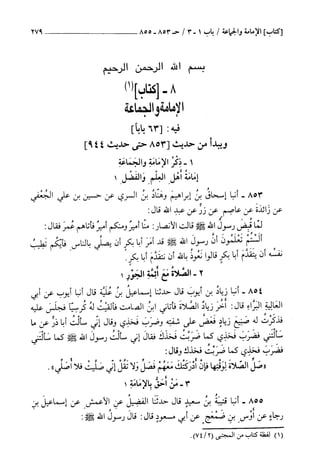 [كتاب] الإمامة والجماعة / باب ١ - ٣ / حـ ٨٥٣ - ٨٥٥ ٢٧٩
بسم الله الرحمن الرحيم
٨ - [كتاب] (١)
الإمامة والجماعة
فيه: [٦٣ باباً]
ويبدأ من حديث [٨٥٣ حتى حديث ٩٤٤]
١ - ذِكْرُ الإِمَامَةِ والجَمَاعَةِ
إِمَامَةُ أَهْلِ العِلْمِ والفَضْلِ ١
٨٥٣ - أنبا إسحاقُ بنُ إبراهيمَ وهَنّادُ بنُ السري عن حسين بن علي الجُعْفي
عن زائدةَ عن عاصمٍ عن زِرٍّ عن عبدِ الله قال:
لمّا قُبِضَ رسولُ الله ﷺ قالت الأنصار: منّا أميرٌ ومنكم أميرٌ فأتاهم عُمَر فقال:
أَلَسْتُمْ تَعْلَمُونَ أنَّ رسولَ الله ﷺ قد أمَرَ أبا بكرٍ أن يصلّي بالناسِ فأيُّكم تَطِيبُ
نفسُه أن يتقدَّمَ أبا بكرٍ قالوا نَعُوذُ بالله أن نتقدَّمَ أبا بكر.
٢ - الصَّلاةُ مَعَ أئمَّةِ الجَوْرِ ١
٨٥٤ - أنبا زيادُ بن أيوبَ قال حدثنا إسماعيلُ بنُ عُلَيَّةَ قال أنبا أيوب عن أبي
العالية البرَّاءِ قال: أخَّرَ زيادٌ الصَّلاةَ فأتاني ابنُ الصامت فألقيتُ له كُرسيّاً فجلَسَ عليه
فذكرْتُ له صَنِيعَ زيادٍ فعَضَّ على شفتِهِ وضرَبَ فخذِي وقال إني سألْتُ أبا ذَرٍّ عن ما
سأَلْتَني فضرَبَ فَخذِي كما ضَرَبْتُ فخذَك فقال إني سألْتُ رسولَ الله ﷺ كما سأَلْتَني
فضرَبَ فخذِي كما ضرَبْتُ فخذَك وقال:
«صلِّ الصّلاةَ لِوَقْتِها فإنْ أدرَكْتَ مَعَهُمْ فَصَلِّ ولا تَقُلْ إنّي صلَّيتُ فلا أُصلّي».
٣ - مَنْ أحَقُّ بالإِمَامَةِ ١
٨٥٥ - أنبا قتيبَةُ بنُ سعيدٍ قال حدثنا الفضيلُ عن الأعمشِ عن إسماعيلَ بنِ
رجاءٍ عن أوسِ بنِ ضَمْعَجٍ عن أبي مسعودٍ قال: قال رسولُ الله ﷺ:
(١) لفظة كتاب من المجتبى (٧٤/٢).